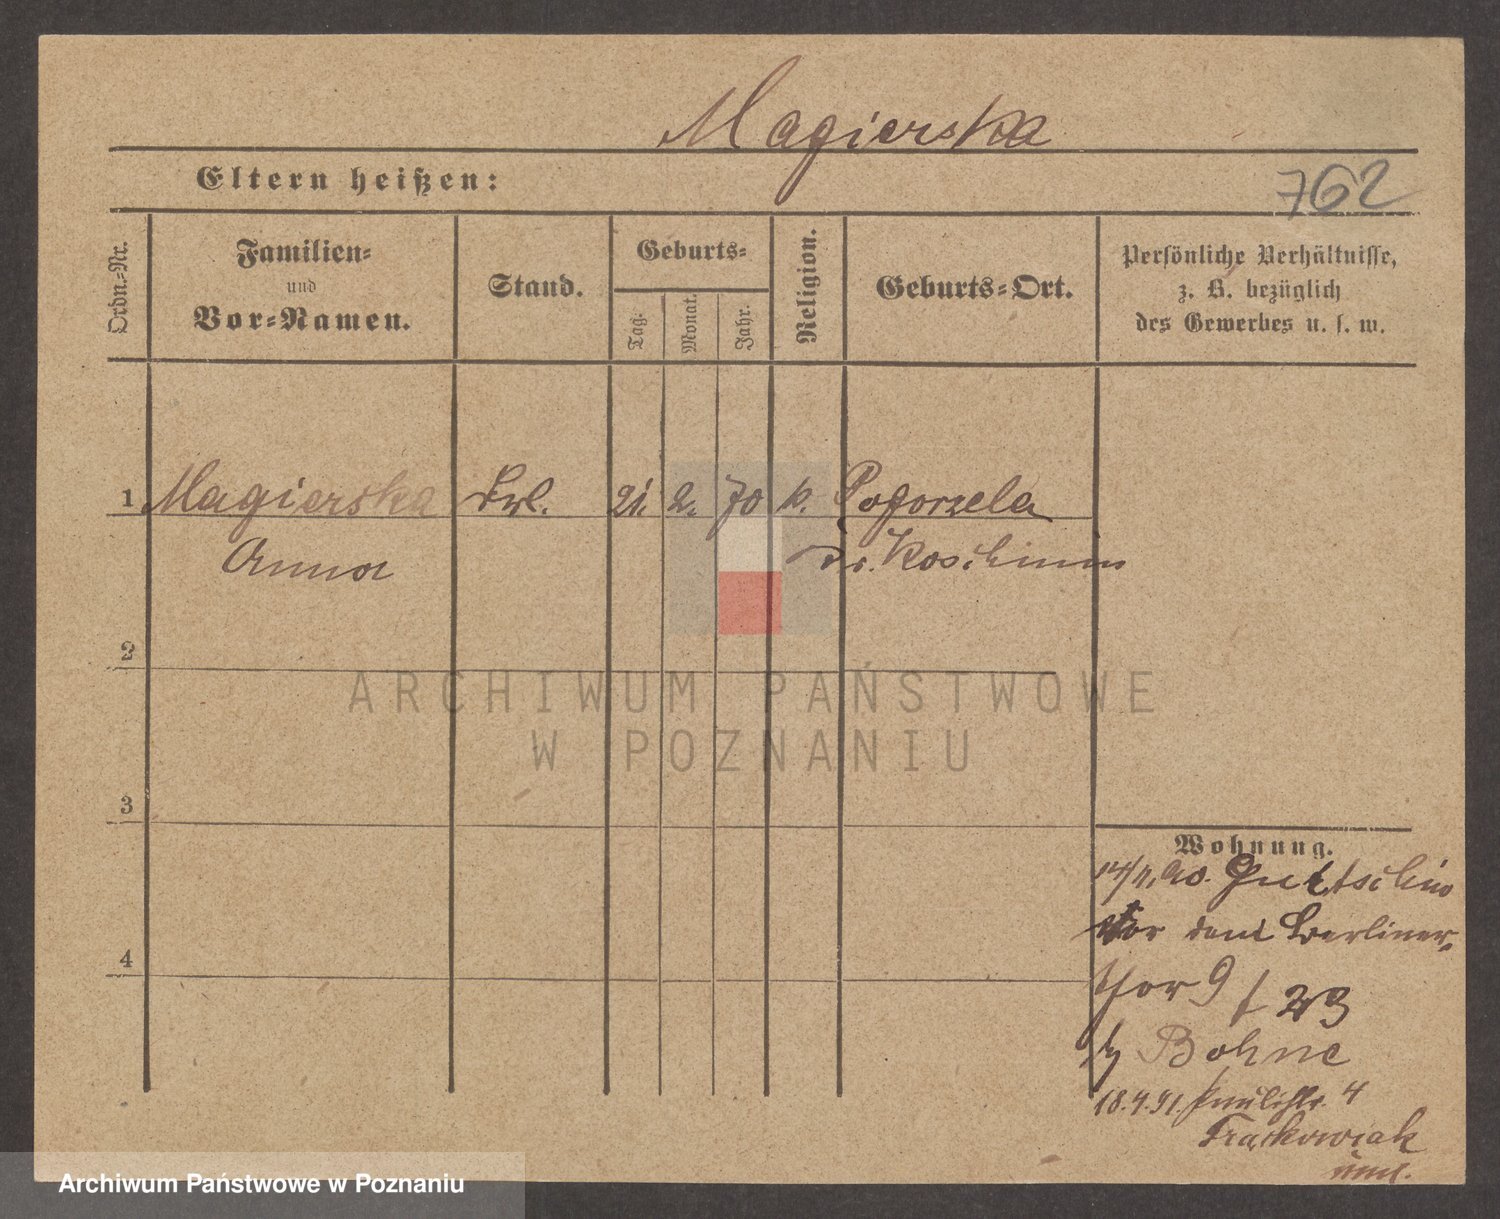 Magierska
Eltern heißen:
762
Ordn.-Nr.
Familien-
und
Vor-Namen.
Stand.
Geburts-
Tag.
Monat.
Jahr.
Religion.
Geburts-Ort.
Persönliche Verhältnisse,
z. B. bezüglich
des Gewerbes u. s. w.
1 Magierska Frl. 21. 2. 70 k. Pogorzela
Anna Kr. Koschmin
2
ARCHIWUM PAŃSTWOWE
W POZNANIU
3
Wohnung.
14/11. 90.
Vor dem Berliner-
4
thor 9 23
b/ Bohne
18.4.91. Paulistr. 4
Frąckowiak
Archiwum Państwowe w Poznaniu